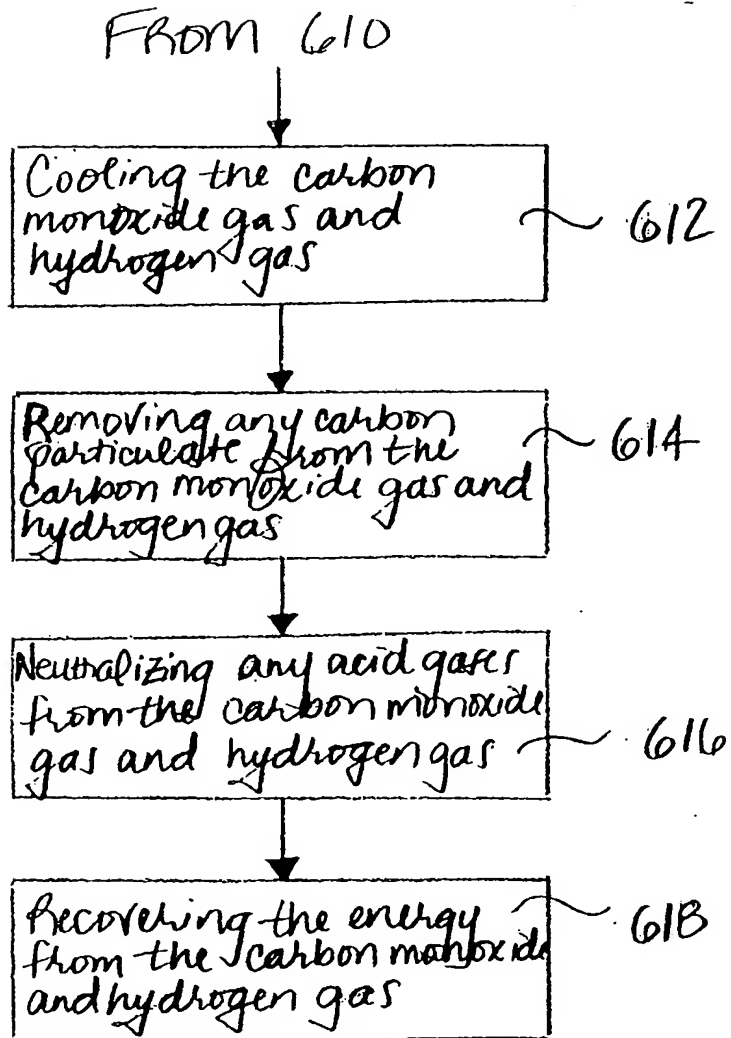 FROM 610
Cooling the carbon
monoxide gas and
hydrogen gas
612
Removing any carbon
particulate from the
carbon monoxide gas and
hydrogen gas
614
Neutralizing any acid gases
from the carbon monoxide
gas and hydrogen gas
616
Recovering the energy
from the carbon monoxide
and hydrogen gas
618